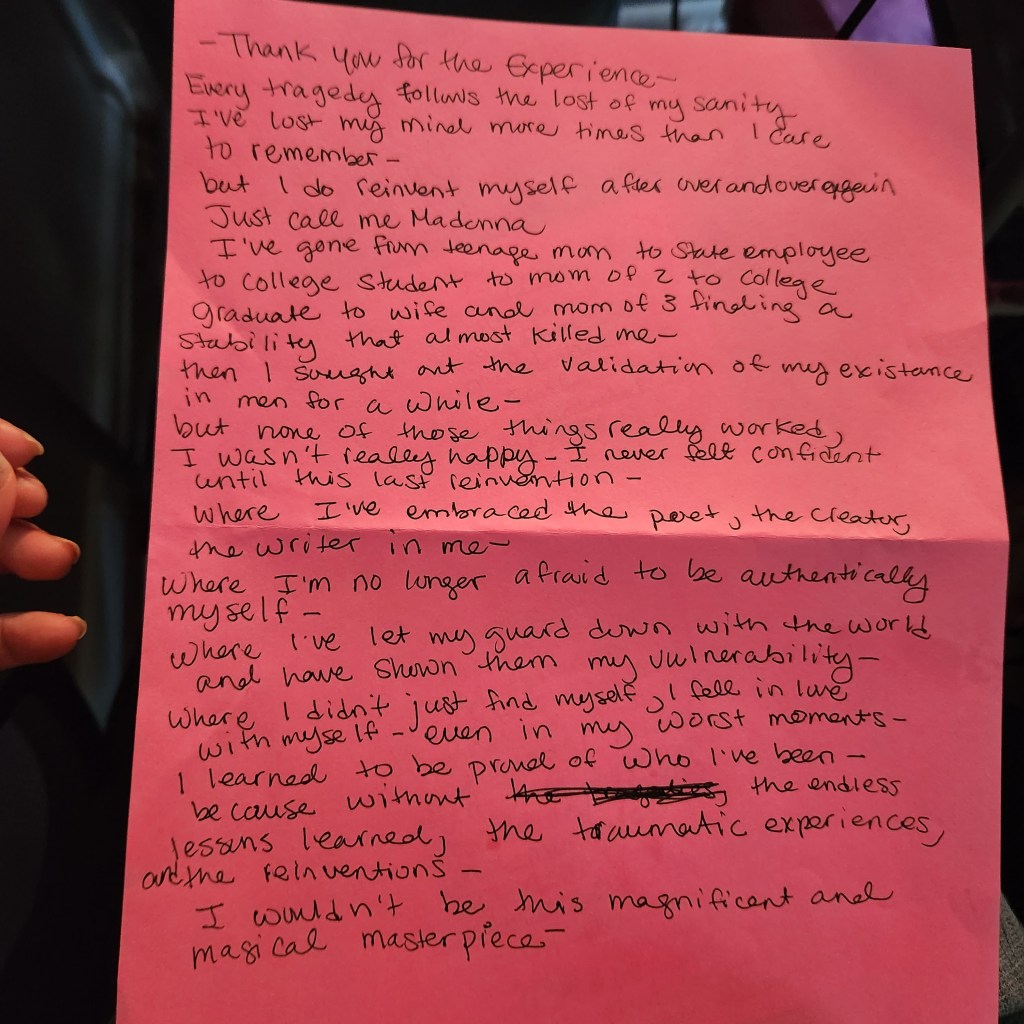 - Thank you for the Experience -
Every tragedy follows the lost of my sanity
I've lost my mind more times than I care
to remember -
but I do reinvent myself after over and over again
Just call me Madonna
I've gone from teenage mom to State employee
to college student to mom of 2 to college
graduate to wife and mom of 3 finding a
stability that almost killed me -
then I sought out the validation of my existance
in men for a while -
but none of those things really worked,
I wasn't really happy - I never felt confident
until this last reinvention -
where I've embraced the poet, the creator,
the writer in me -
Where I'm no longer afraid to be authentically
myself -
Where I've let my guard down with the world
and have shown them my vulnerability -
Where I didn't just find myself, I fell in love
with myself - even in my worst moments -
I learned to be proud of who I've been -
because without the endless
lessons learned, the traumatic experiences,
and the reinventions -
I wouldn't be this magnificent and
magical masterpiece -